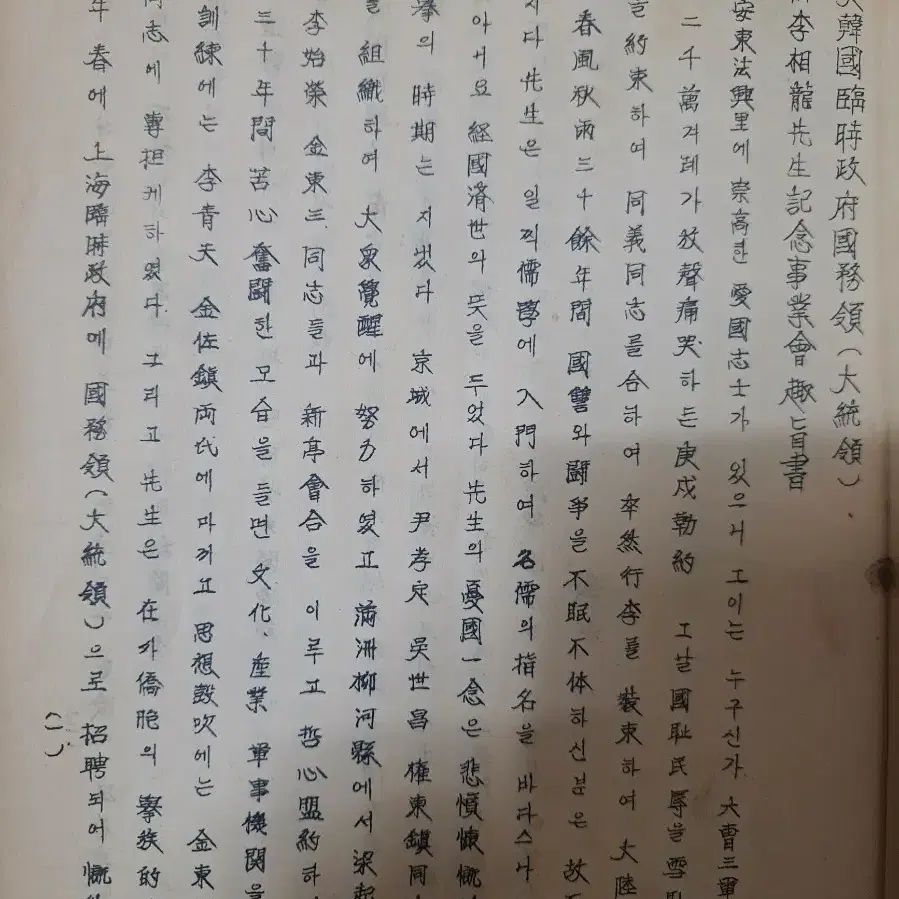 大韓國臨時政府國務領(大統領)
李相龍先生記念事業會趣旨書
安東法興里에 崇高한 愛國志士가 있으니 그이는 누구신가 大曹三軍
二千萬겨레가 放聲痛哭하든 庚戌勒約 그날國耻民辱을雪
을 約束하여 同義同志를 合하여 卒然行李를 裝束하여 大陸
春風秋雨三十餘年間 國讐와 鬪爭을 不眠不休하신분은 故
지다 先生은 일찍儒學에 入門하여 名儒의 指名을 바다스나
아서요 経國済世의 뜻을 두었다 先生의 憂國一念은 悲憤慷慨
擧의 時期는 지냈다 京城에서 尹孝定 吳世昌 權東鎭同
을 組織하여 大衆覺醒에 努力하였고 滿洲柳河縣에서 梁起
李始榮 金東三 同志들과 新亭會合을 이루고 哲心盟約하
三十年間 苦心奮鬪한 모습을 들면 文化、産業 軍事機関을
訓練에는 李青天 金佐鎭両氏에 마끼고 思想鼓吹에는 金東
同志에 專担케하였다 그리고 先生은 在가僑胞의 擧族的
年 春에 上海臨時政府에 國務領(大統領)으로 招聘되어 慨
(一)